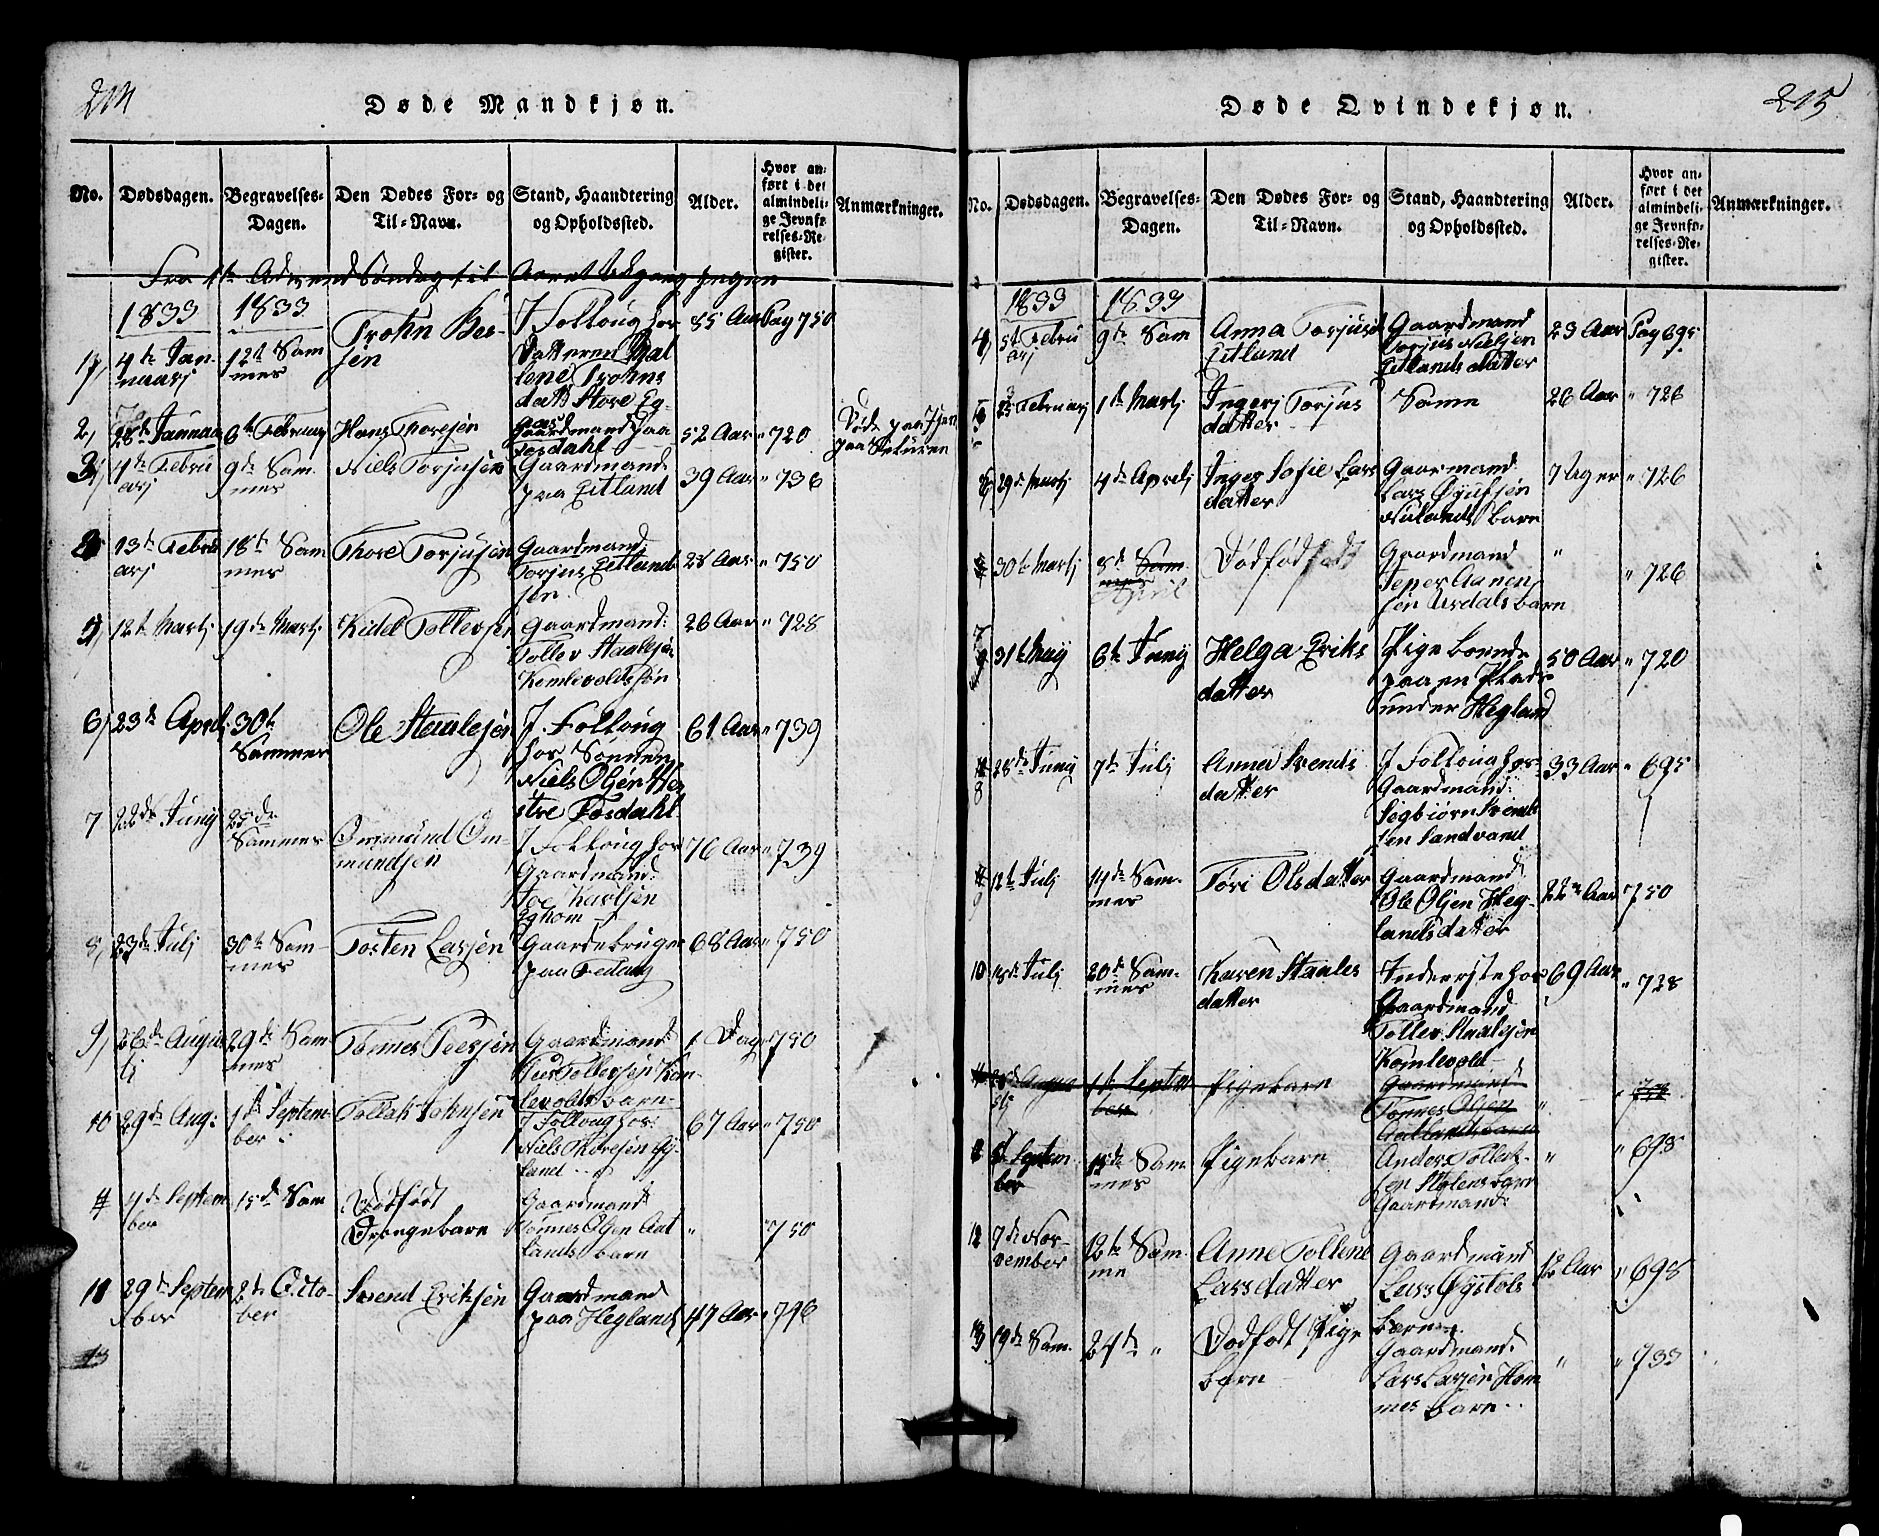 214
Døde Mandkjøn.
No.
Dødsdagen.
Begravelses-
Dagen.
Den Dødes For- og
Til-Navn.
Stand, Haandtering
og Opholdssted.
Alder.
Hvor an-
ført i det
almindeli-
ge Jevnfø-
relses-Re-
gister.
Anmærkninger.
Fra 1te Advend Søndag til Aaret Udgang Ingen
1833
1833
1, 4de Jan-
nuarj
12te Sam
mes
Trohn
sen
J Folloug hos
Datteren Mal
lene Trohns
datt Store Eg-
85 Aar
Pag 750
2, 28de Januar
6te Februarj
Hans Thoresen
Gaardmand paa
Fosdahl
52 Aar
" 720
Døde paa
paa Returen
3, 1te Febru
arj
9de Sam-
mes
Niels Torjusen
Gaardmand
paa Eitland
39 Aar
" 736
13te Febru
arj
18te Sam
mes
Thore Torjusen
Gaardmand
Torjus Eitlands
sen.
28 Aar
" 750
5, 12te Martj
19de Martj
Kidel Tollevsen
Gaardmand:
Tollev Staalesen
Komlevolds søn
26 Aar
" 728
6, 23de April
30te
Sammes
Ole Staalesen
J. Folloug
hos Sønnen
Niels Olsen
Fosdahl
61 Aar
" 739
7 22de Junj
25de
Sammes
Ommund Om-
mundsen
J Follough hos
Gaardmand:
Karlsen
Eghom
76 Aar
" 739
8, 23de Julj
30te Sam-
mes
Tosten Larsen
Gaardebruger
paa Fedaug
68 Aar
" 750
9, 26de Augu
tj
29de Sam-
mes
Tønnes Peersen
Gaardmand:
Peer Tollevsen Kom-
levolds barn
1 Dag
" 750
10 29de Aug:
1te Septem-
ber
Tollak Johnsen
J Folloug hos:
Niels Thoresen Ey-
land
67 Aar
" 750
4de Septem
ber
15de Sam
Dødfødt
Drengebarn
Gaardmand:
Tønnes Olsen Aat
lands barn
"
" 750
29de Septem
ber
2de Octo-
ber
Svend Eriksen
Gaardmand
paa Hegland
47 Aar
" 746
13
215
Døde Qvindekjøn.
No.
Dødsdagen.
Begravelses-
Dagen.
Den Dødes For- og
Til-Navn.
Stand, Haandtering
og Opholdssted.
Alder.
Hvor an-
ført i det
almindeli-
ge Jevnfø-
relses-Re-
gister.
Anmærkninger.
1833
1833
4, 5te Febru
arj
9de Sam
Anna Torjusd
Eitland
Gaardmand
Torjus Nielsen
Eitlands datter
23 Aar
Pag 695
Februarj
1te Martj
Ingerj Torjus
datter
Same
26 Aar
" 726
6, 29de Martj
4de Aprilj
Inger Sofie Lars
datter
Gaarmand
Lars
barn
7 Uger
" 726
30te Martj
8de Sam
April
Dødfødt
Gaardmand
Jeper Aanen
sen Usdals barn
"
" 726
31te Maj
6te Junj
Helga Eriks
datter
Pige boende
paa en Plads
under Hegland
50 Aar
" 720
8
28de Junj
7de Julj
Anna Svends
datter
J Folloug hos
Gaardmand:
Sigbiørn Svend
sen Sandvand
33 Aar
" 695
12te Julj
14de Sam-
mes
Tøri Olsdatter
Gaardmand
Ole Olsen Heg-
lands datter
22 Aar
750
10 18de Julj
20de Sam-
mes
Karen Staales
datter
Inderste hos
Gaardmand
Tollev Staalesen
Komlevold
69 Aar
" 728
1te Septem
ber
Pigebarn
Gaardmand
Tønnes Olsen
Aatlands barn
"
Septem-
ber
15de Sam
mes
Pigebarn
Anders Tollak-
sen barn
Gaardmand:
"
" 698
12 7de Nov-
vember
12te Sam
me
Anne Tolline
Larsdatter
Gaardmand
Lars Øystols
barn
12 Aar
" 698
13 19de Sam.
24de "
Dødfødt Pige
barn
Gaardmand:
Lars Larsen Hom
mes barn
"
" 733